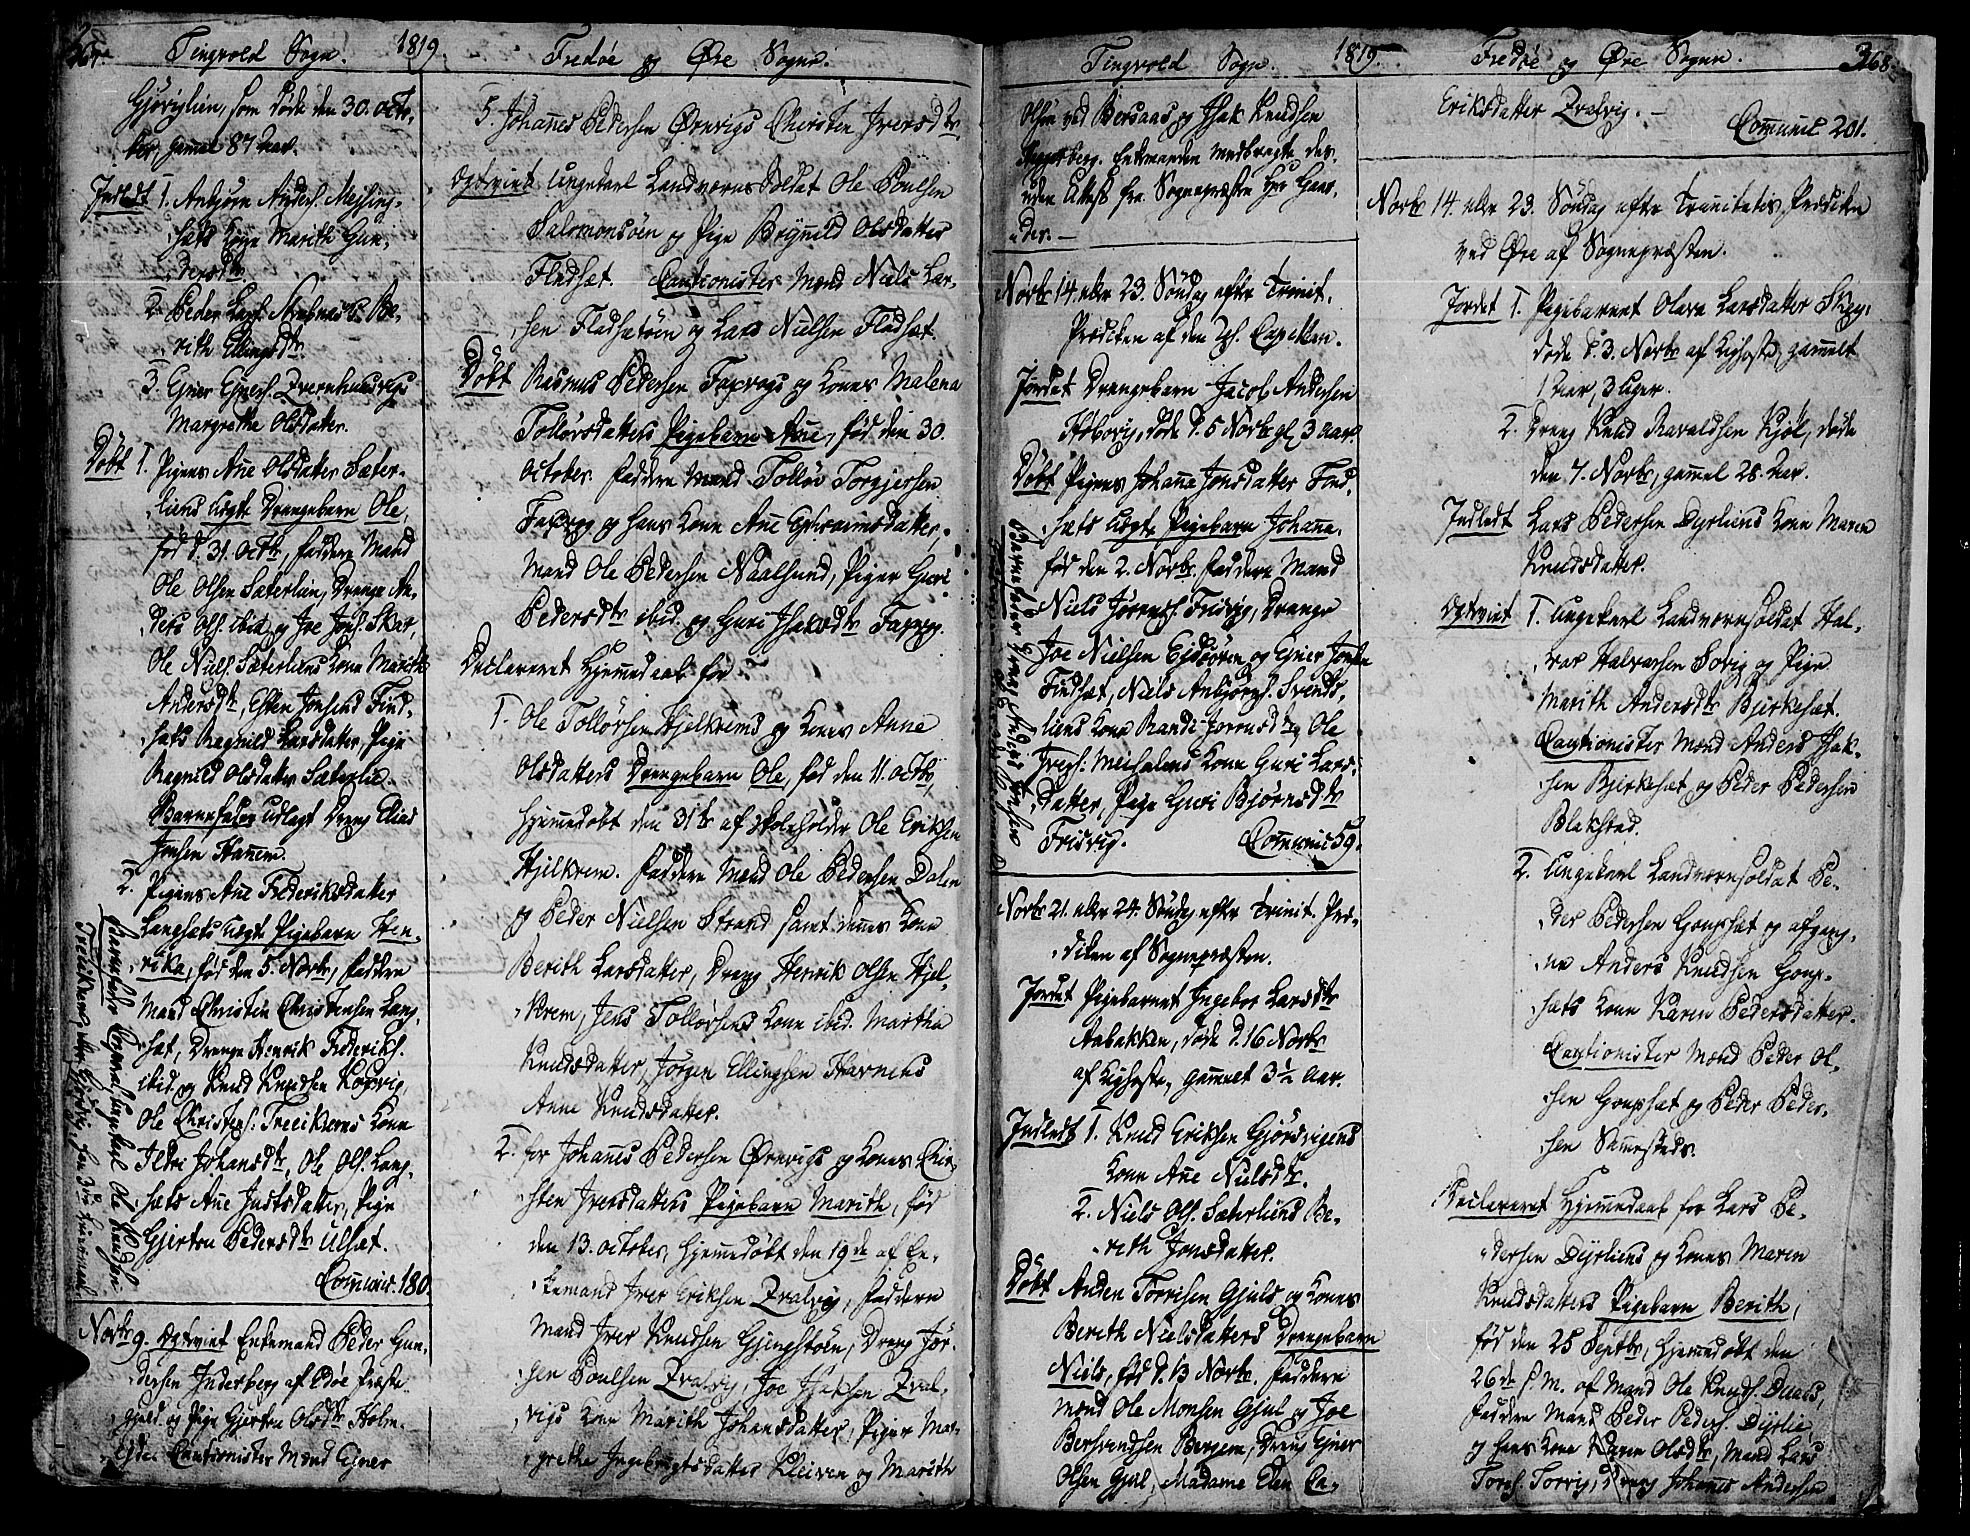 Tingvold Sogn. 1819.
Gjøviglien, som døde den 30. octo-
ber, gamel 87 Aar.
Indledt 1. Anbjørn Anders. Meising-
sæts Kone Marith Gun-
dersdtr
2. Peder Lars. Be-
rith Ellingsdtr.
3. Ejner Ejners.
Margrethe Olsdatter.
Døbt 1. Pigens Ane Olsdatter Sæter-
liens uægte Drengebarn Ole,
fød d. 31. octbr, faddere Mand
Ole Olsen Sæterlien, Drenge An-
ders Ols. ibid. og Joe Joh. Skar,
Ole Niels. Sæterliens Kone Marith
Andersdtr, Esten Jonsens Find-
sæts Ragnild Larsdatter, Pige
Ragnild Olsdatter Sæterlie.
Barnefader udlagt Dreng Elias
Jonsen Hanem.
2. Pigens Ane Frederiksdatter
Langsæts uægte Pigebarn Hen-
rika, fød den 5. Novbr, faddere
Mand Christen Christensen Lang-
sæt, Drenge Henrik Frederiks.
ibid. og Knud Knudsen Kogsvig,
Ole Christens. Treeikrems Kone
Ildri Johansdtr, Ole Ols. Lang-
sæts Ane Justsdatter, Pige
Gjertru Pedersdtr Ulset.
Comunic. 180.
Novbr 9. Egteviet Enkemand Peder Gun-
dersen Inderberg af Edøe Præste-
gjeld og Pige Gjertru Olsdtr Holm-
Cautionister Mænd Ejner
Fredøe og Øre Sogne.
5. Johanes Pedersen Ørevigs Chirsten Iversdtr
Egteviet Ungekarl Landværns Soldat Ole Poulsen
Salomonsøen og Pige Brynild Olsdatter
Fladsæt. Cautionister Mænd Niels Lar-
sen Fladsætøen og Lars Nielsen Fladsæt.
Døbt Rasmus Pedersen Farvogs og Kones Malena
Tollørsdatters Pigebarn Ane, fød den 30.
october. faddere Mænd Tolløv Torgjersen
Farvog og hans Kone Ane Ephraimsdatter.
Mand Ole Pedersen Naalsund, Piger Guri
Pedersdtr ibid. og Guri Isaksdtr Farvog.
Declareret Hjemmedaab for
1. Ole Tollørsen Hjelkrems og Kones Anne
Olsdatters Drengebarn Ole, fød den 11. octbr,
hjemmedøbt den 31te af Skoleholder Ole Eriksen
Hjelkrem. faddere Mænd Ole Pedersen Dalen
og Peder Nielsen Strand samt dennes Kone
Berith Larsdatter, Dreng Henrik Olsen Hjel-
krem, Jens Tollørsens Kone ibid. Martha
Knudsdatter, Jørgen Ellingsen Havnens
Anne Knudsdatter.
2. for Johanes Pedersen Ørevigs og Kones Chir-
sten Iversdatters Pigebarn Marith, fød
den 13. october, hjemmedøbt den 19de af En-
kemand Iver Eriksen Qvalvig, faddere
Mand Iver Knudsen Gjengstøen, Dreng Jør-
gen Poulsen Qvalvig, Joe Isaksen Qval-
vigs Kone Marith Johansdatter, Piger Mar-
grethe Ingebrigtsdatter Kleiven og Marith
Tingvold Sogn. 1819.
Olsen ved Bersaas og Isak Knudsen
Enkemanden medbragte des-
uden Attest fra Sognepræsten Hr. Gaar-
der. —
Novbr 14. eller 23. Søndag efter Trinit.
Prædiken af den res. Capellan.
Jordet Drengebarn Jacob Andersen
Høbovig, døde d. 5 Novbr gl. 3 Aar.
Døbt Pigens Johanne Jonsdatter Find-
sæts uægte Pigebarn Johana,
fød den 2. Novbr, faddere Mand
Niels Jørens. Frisvig, Drenge
Joe Nielsen Egdsøren og Ejner Jonsen
Findsæt, Niels Anbjørns. Svends-
liens Kone Randi Jørensdtr, Ole
Guri Lars-
datter, Pige Guri Bjørnsdtr
Frisvig. Comunic. 59.
Novbr 21. eller 24. Søndag efter Trinit. Præ-
diken af Sognepræsten.
Jordet Pigebarnet Ingebor Larsdtr
Aabakken, døde d. 16 Novbr
af Kighoste, gammelt 3½ Aar.
Indledt 1. Knud Eriksen Gjørsvigens
Kone Ane Nielsdtr.
2. Niels Ols. Sæterliens Be-
rith Jonsdatter.
Døbt Anders Torrisen Gjuls og Kones
Berith Nielsdatters Drengebarn
Niels, fød d. 13 Novbr. faddere
Mænd Ole Monsen Gjul og Joe
Bersvendsen Bergem, Dreng Ejner
Olsen Gjul, Madame Elen Ca-
Fredøe og Øre Sogne. 368.
Eriksdatter Qvalvig. —
Comunic. 201.
Novbr 14. eller 23. Søndag efter Trinitatis, Prædiken
ved Øre af Sognepræsten.
Jordet 1. Pigebarnet Olava Larsdatter
døde d. 3. Novbr af Kighoste, gammelt
1 Aar, 3 Uger.
2. Dreng Knud Kjøl, døde
den 7. Novbr, gammel 28. Aar.
Indledt Lars Pedersen Dyrliens Kone Maren
Knudsdatter.
Egteviet 1. Ungekarl Landværnsoldat Hal-
vor Halvorsen Torvig og Pige
Marith Andersdtr Bjerkesæt.
Cautionister Mænd Anders Isak-
sen Bjerkesæt og Peder Pedersen
Blakstad.
2. Ungekarl Landværnsoldat Pe-
der Pedersen Goupsæt og afgang-
ne Anders Knudsen Goup-
sæts Kone Karen Pedersdatter.
Cautionister Mænd Peder Ol-
sen Goupsæt og Peder Peder-
sen Sammesteds.
Declareret Hjemmedaab for Lars Pe-
dersen Dyrliens og Kones Maren
Knudsdatters Pigebarn Berith,
fød den 25 Septbr, hjemmedøbt den
26de s. M. af Mand Ole Knuds.
faddere Mand Peder Peders. Dyrlie,
og hans Kone Karen Olsdtr, Mand Lars
Tores. Torvig, Dreng Johanes Andersen